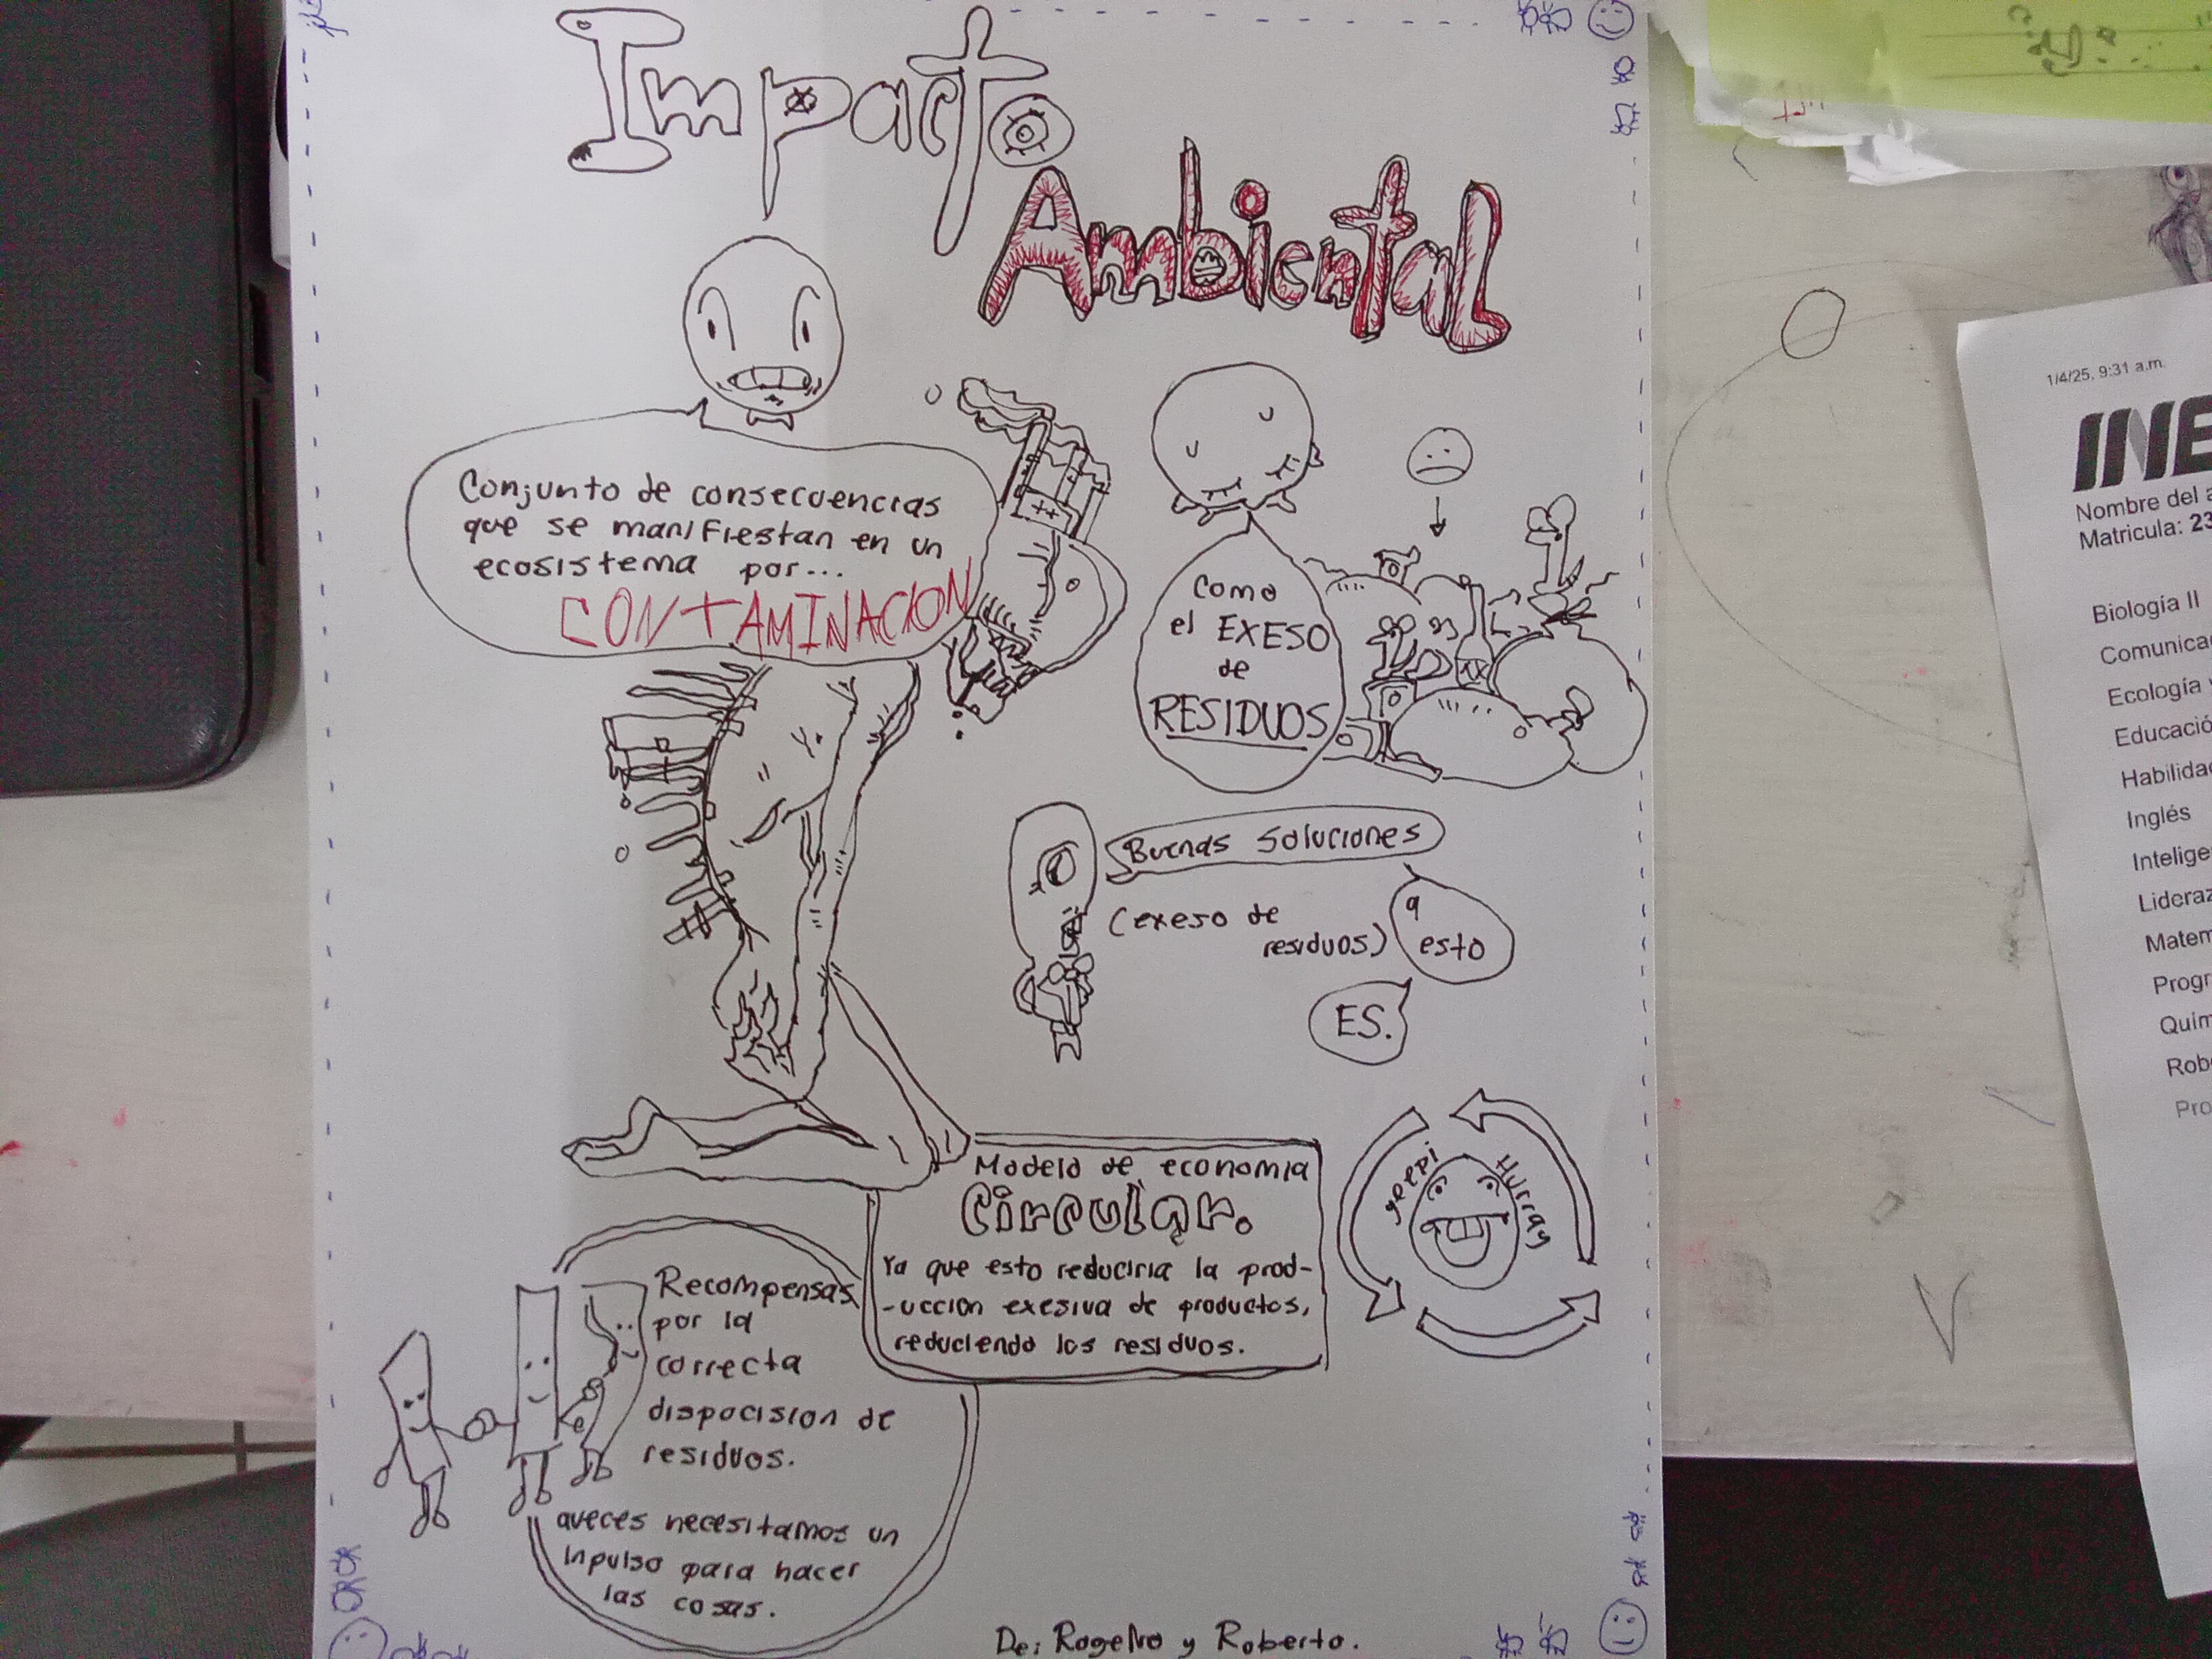 Impacto
Ambiental
Conjunto de consecuencias
que se manifiestan en un
ecosistema por...
CONTAMINACION
Como
el EXESO
de
RESIDUOS
Buenas soluciones
(exeso de
residuos)
a
esto
ES.
Modelo de economia
Circular.
Ya que esto reduciria la prod-
-uccion exesiva de productos,
reduciendo los residuos.
yeepi
Hurray
Recompensas
por la
correcta
dispocision de
residuos.
aveces necesitamos un
inpulso para hacer
las cosas.
De: Rogelio y Roberto.
1/4/25, 9:31 a.m.
INE
Nombre del a
Matricula: 23
Biología II
Comunica
Ecología y
Educació
Habilidad
Inglés
Intelige
Lideraz
Matem
Progr
Quím
Rob
Pro